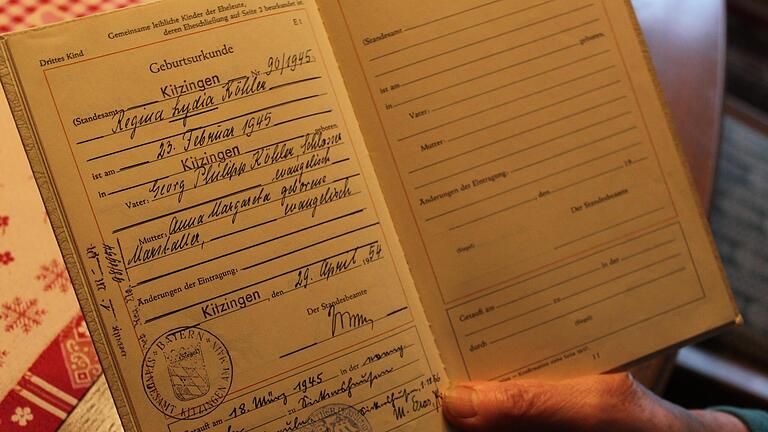 Gemeinsame leibliche Kinder der Eheleute,
deren Eheschließung auf Seite 2 beurkundet ist.
Drittes Kind
E:
Geburtsurkunde
(Standesamt Kitzingen Nr. 90/1945
Regina Lydia Köhler
ist am 23. Februar 1945
in Kitzingen geboren.
Vater: Georg Philipp Köhler, Schlosser
evangelisch
Mutter: Anna Margareta geborene
Marstaller, evangelisch
Änderungen der Eintragung:
Kitzingen, den 29. April 1954
Der Standesbeamte
(Siegel)
BAYERN
STANDESAMT KITZINGEN AM
Getauft am 18. März 1945 in der
zu
(Standesamt
ist am geboren.
in
Vater:
Mutter:
Änderungen der Eintragung:
, den 19
Der Standesbeamte
(Siegel)
Getauft am in der
zu
durch
(Siegel)
Konfirmation siehe Seite
11